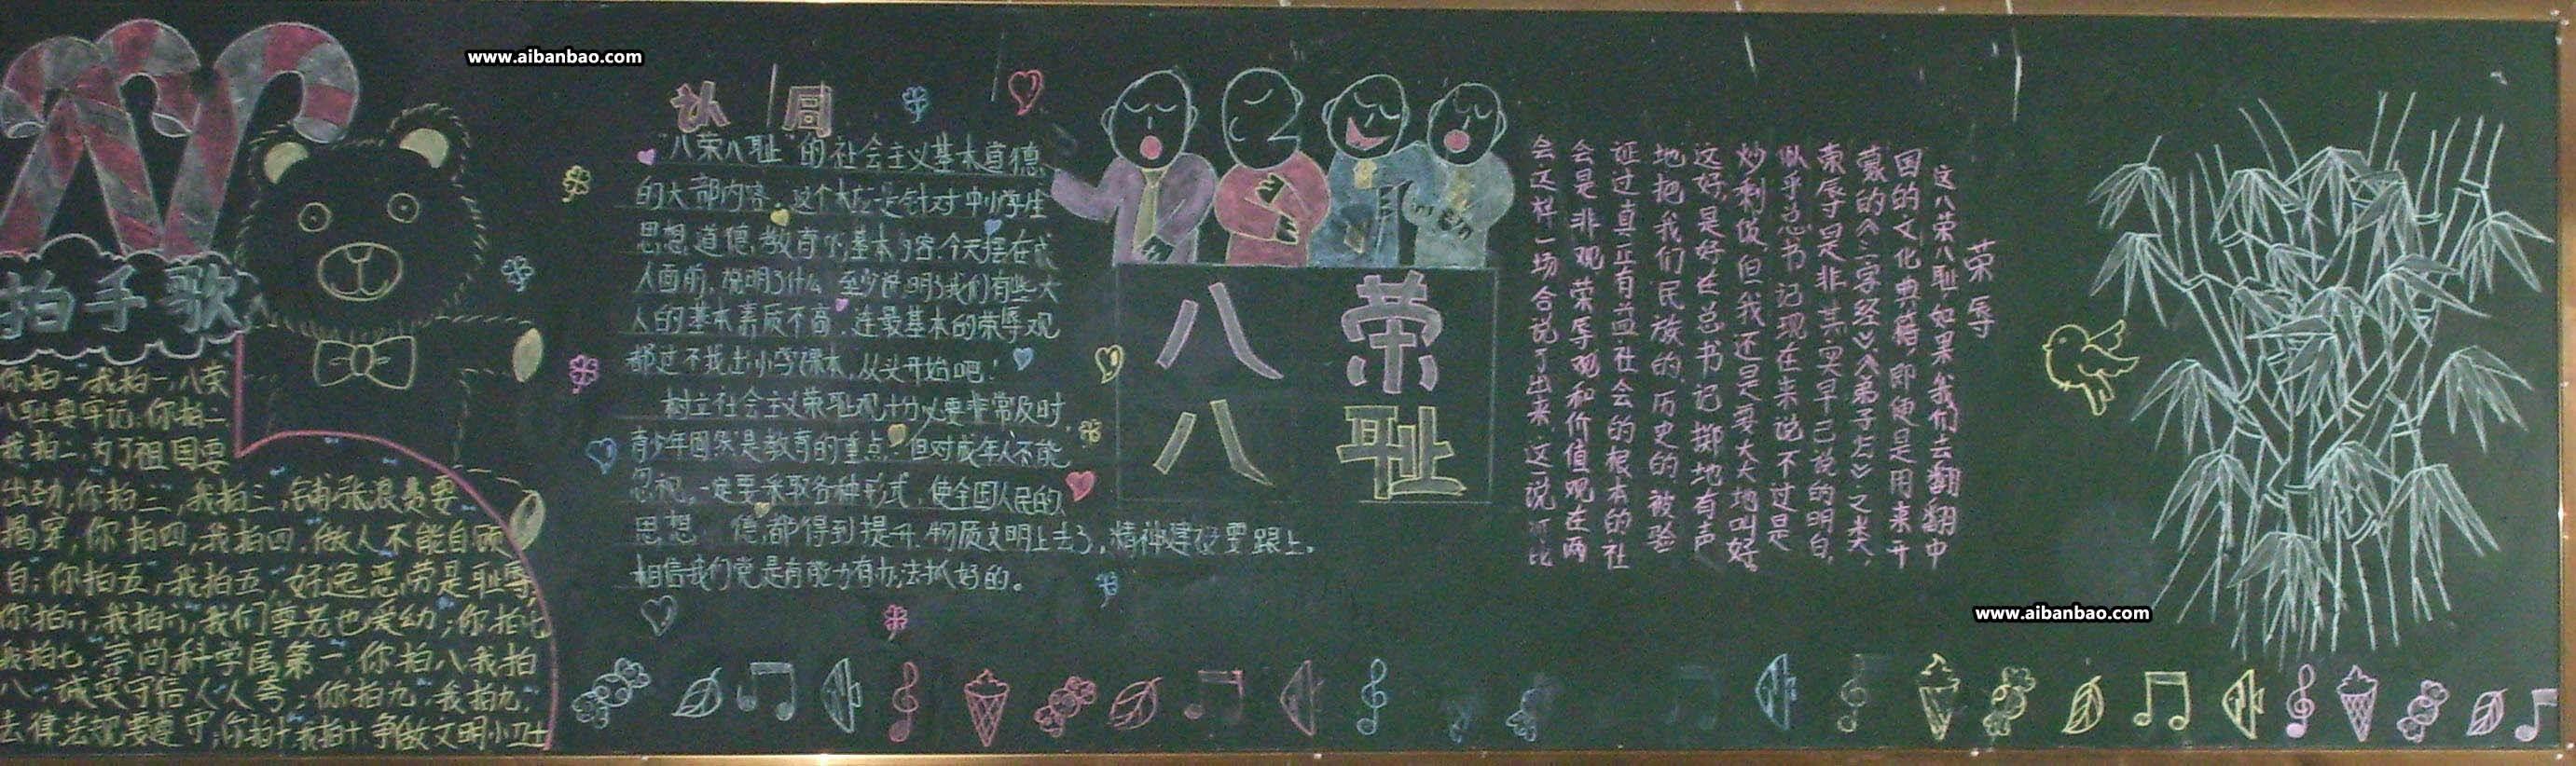 www.aibanbao.com
拍手歌
你拍一,我拍一,八荣
八耻要牢记;你拍二
我拍二,为了祖国要
出劲,你拍三,我拍三,铺张浪费要
揭穿,你拍四,我拍四,做人不能自顾
自;你拍五,我拍五,好逸恶劳是耻辱,
你拍六,我拍六,我们尊老也爱幼;你拍七
我拍七,学尚科学属第一,你拍八我拍
八,诚实守信人人夸;你拍九,我拍九,
去律法规要遵守;你拍十我拍十,争做文明小卫士
认同
"八荣八耻"的社会主义基本道德
的大部内容,这个本应是针对中小学生
思想道德,教育的基本内容,今天摆在成
人面前,说明了什么 至少说明了我们有些大
人的基本素质不高,连最基本的荣辱观
都过不 找出小学课本,从头开始吧!
树立社会主义荣耻观十分必要非常及时,
青少年固然是教育的重点,但对成年人不能
忽视,一定要采取各种形式,使全国人民的
思想 德,都得到提升,物质文明上去了,精神建设要跟上,
相信我们党是有能力有办法抓好的。
八荣
八耻
荣辱
这八荣八耻如果,我们去翻翻中
国的文化典籍,即便是用来开
蒙的《三字经》《弟子 》之类,
荣辱曰是非,其实早已说的明白,
似乎总书记现在来说不过是
炒剩饭但我还是要大大地叫好。
这好,是好在总书记掷地有声
地把我们民族的,历史的,被验
证过真正有益社会的根本的社
会是非观荣辱观和价值观在两
会这样一场合说了出来,这说 比
www.aibanbao.com